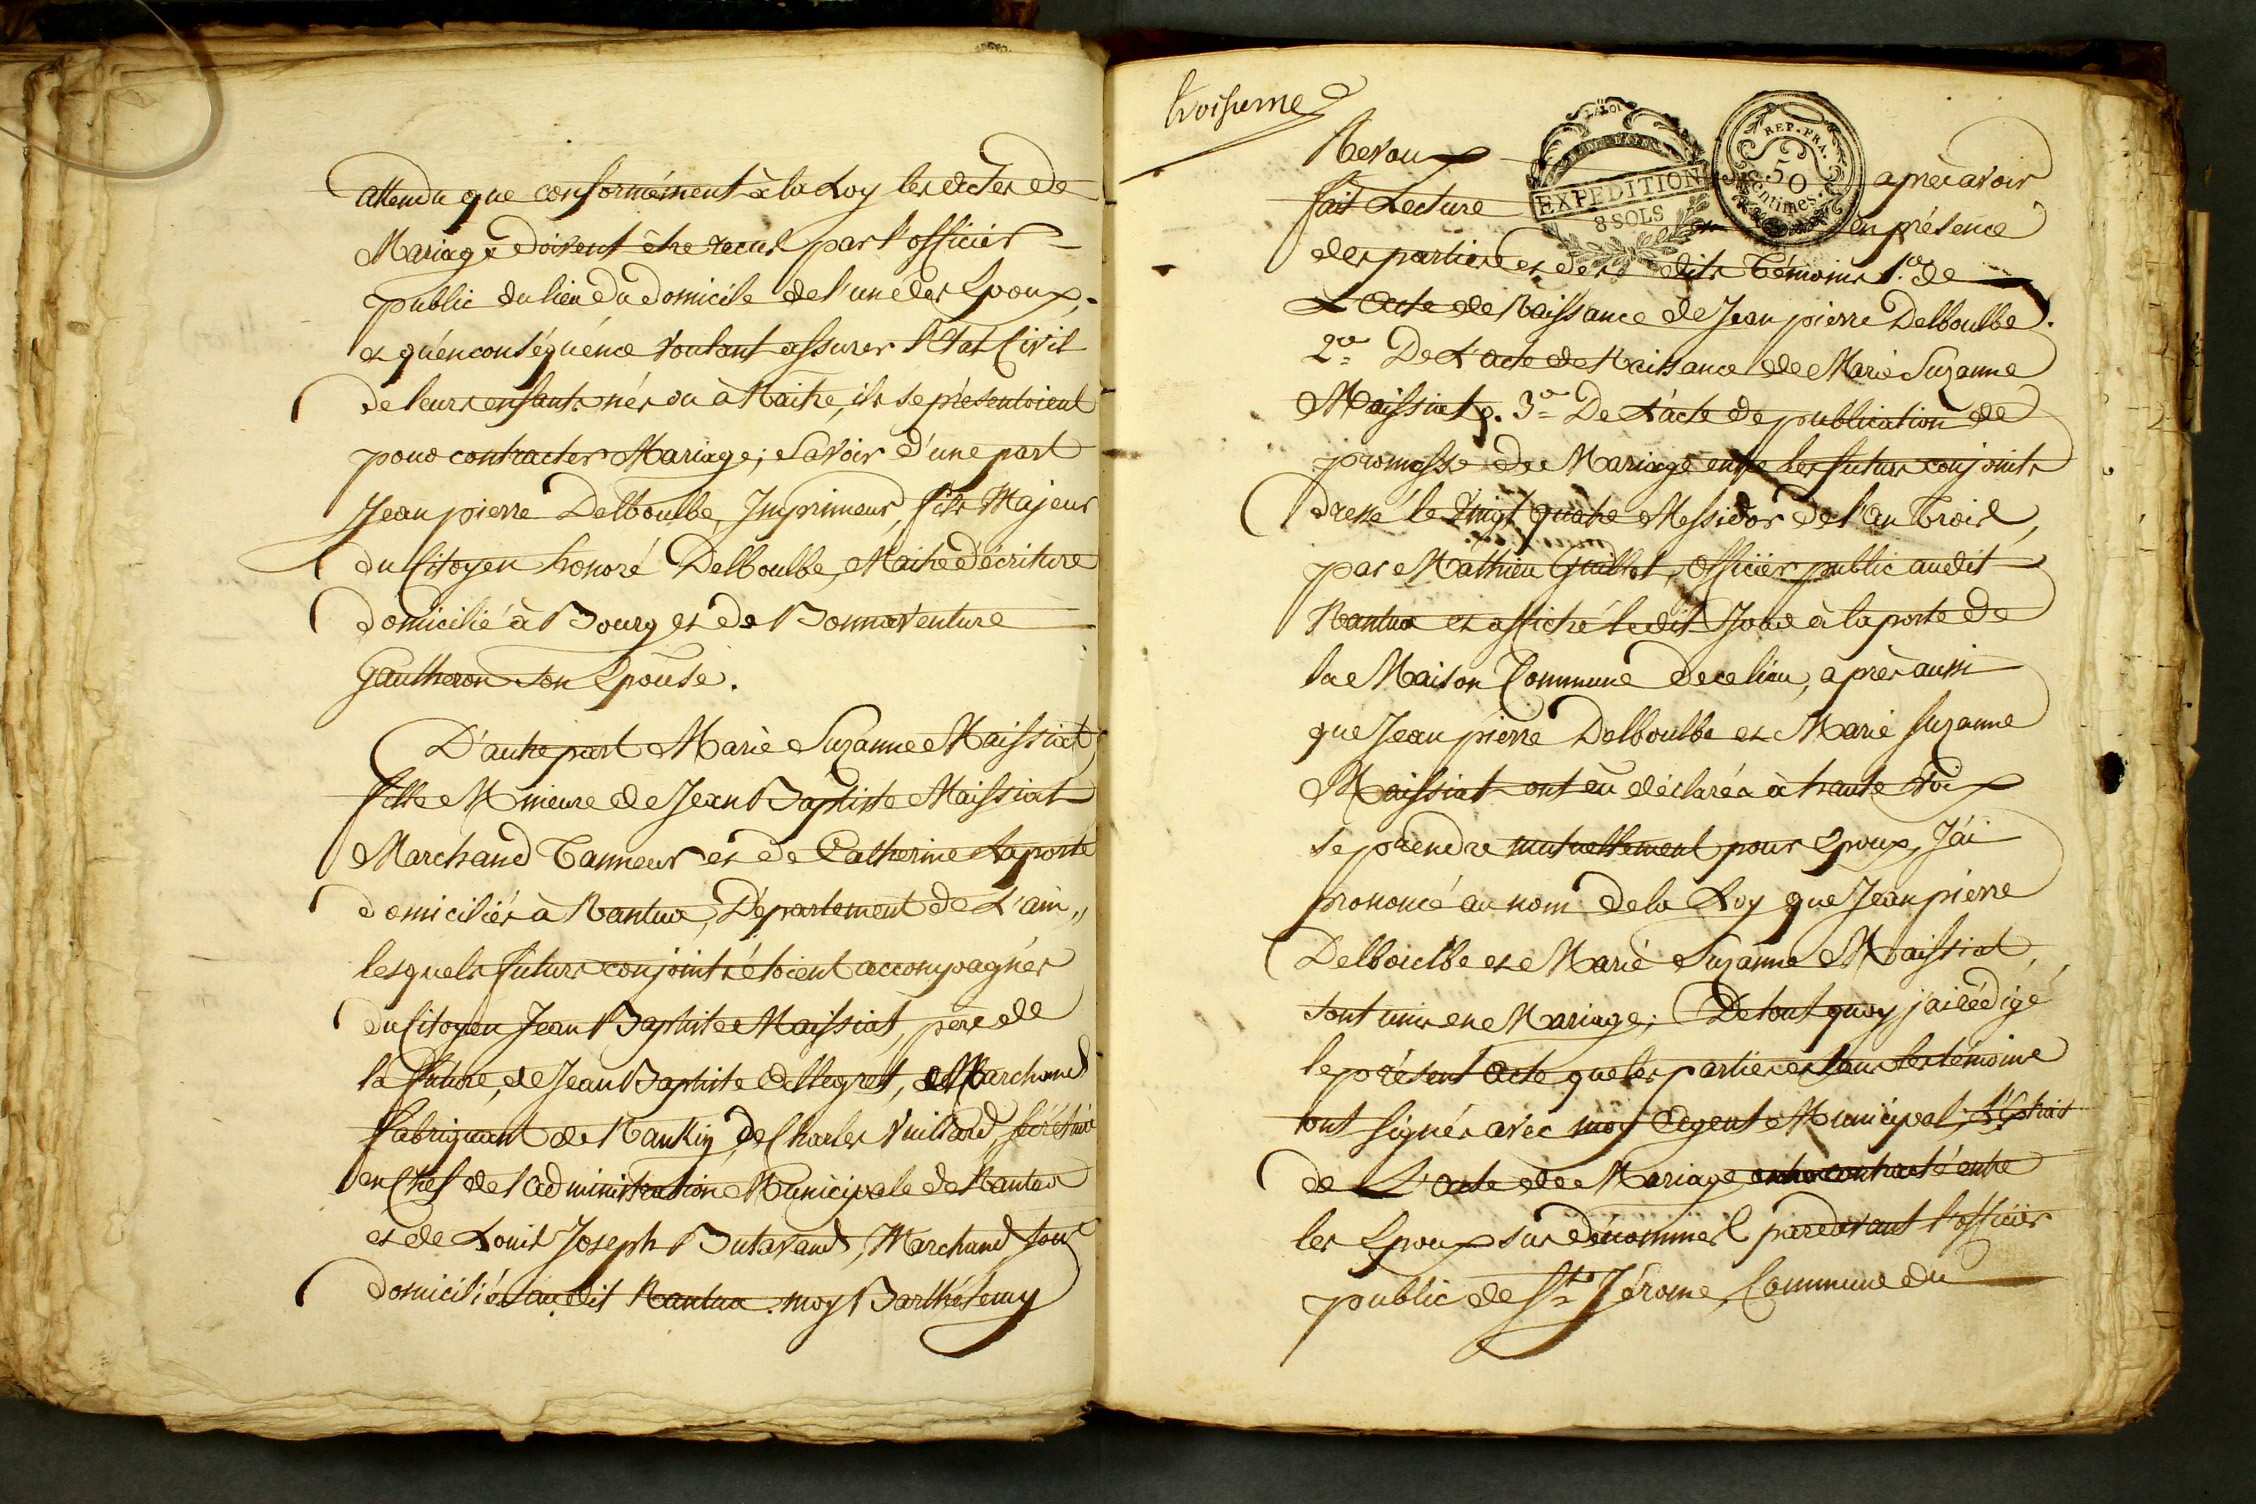 attendu que conformément à la Loy les actes de
Mariage doivent être recus par l'officier
public du lieu du Domicile de l'un des Epoux,
et qu'en conséquence voulant assurer l'Etat Civil
de leurs enfants nés ou à Naitre, ils se présentoient
pour contracter Mariage; savoir d'une part
Jean pierre Delboulbe, Imprimeur, fils Majeur
du Citoyen honoré Delboulbe, Maitre d'écriture
domicilié à Bourg et de Bonnaventure
Gautheron son Epouse.
D'autre part Marie Suzanne Maissiat,
fille Mineure de Jean Baptiste Maissiat
Marchand Tanneur et de Catherine Laporte
domiciliés à Nantua, Département de L'ain,,
lesquels futurs conjoints étoient accompagnés
du Citoyen Jean Baptiste Maissiat, père de
la future, de Jean Baptiste Allegret, Marchand
fabriquant de Nankin, de Charles Vuillard, secrétaire
en Chef de l'administration Municipale de Nantua
et de Louis Joseph Butavand, Marchand tous
domiciliés audit Nantua. moy Barthélemy
troisieme
LA LOI
EXPEDITION
8 SOLS
REP. FRA.
50
Centimes
Revoux après avoir
fait Lecture en présence
des parties et des dits Témoins 1.º de
L'Acte de Naissance de Jean pierre Delboulbe.
2.º De L'acte de Naissance de Marie Suzanne
Maissiat. 3.º De L'acte de publication de
promesse de Mariage entre les futurs conjoints
dressé le Vingt quatre Messidor de l'an Trois,
par Mathieu Guillot, officier public audit
Nantua et affiché ledit Jour à la porte de
la Maison Commune de ce lieu, après aussi
que Jean pierre Delboulbe et Marie Suzanne
Maissiat ont eû déclarés à haute voix
se prendre mutuellement pour Epoux, J'ai
prononcé au nom de la Loy que Jean pierre
Delboulbe et Marie Suzanne Maissiat,
sont unis en Mariage; De tout quoy j'ai rédigé
le présent Acte que les parties et tous les témoins
ont signés avec moy Agent Municipal; L'Extrait
de L'acte de Mariage contracté entre
les Epoux sus dénommés pardevant l'officier
public de St. Jérome, Commune du